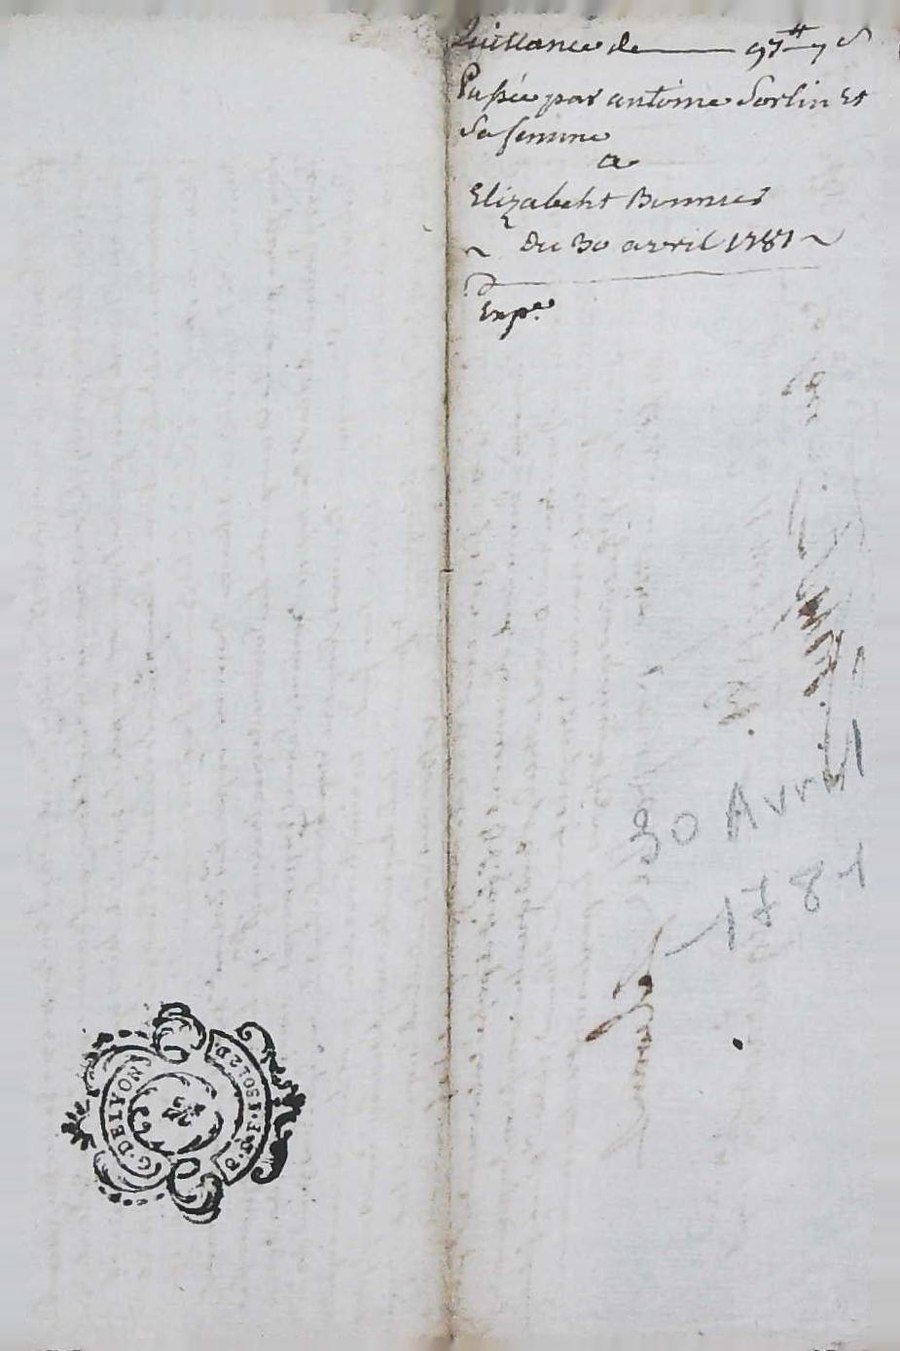 Quittance de 97# 7 s
Passée par antoine Sorlin Et
Sa femme
a
Elizabeht Bonnier
~ du 30 avril 1781 ~
Exp.e
30 Avril
1781
G. DE LYON